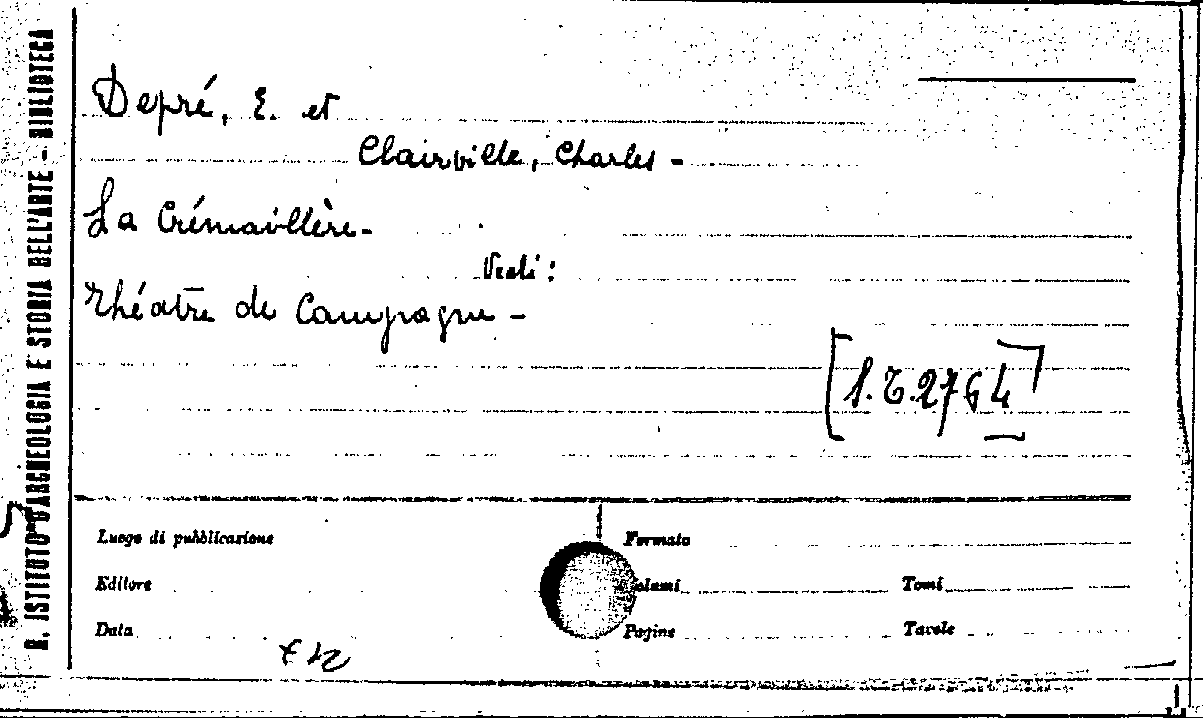 R. ISTITUTO D'ARCHEOLOGIA E STORIA DELL'ARTE - BIBLIOTECA
Depré, E. et
Clairville, Charles -
La Crémaillère -
Vedi:
Théatre de Campagne -
[S.T.2764]
Luogo di pubblicazione
Formato
Editore
Volumi
Tomi
Data
Pagine
Tavole